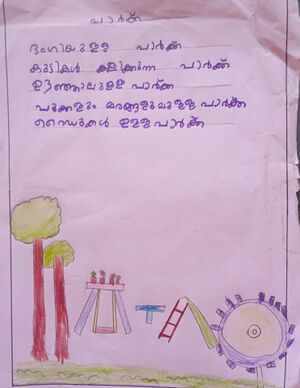 പാർക്ക്
ഭംഗിയുള്ള പാർക്ക്
കുട്ടികൾ കളിക്കുന്ന പാർക്ക്
ഊഞ്ഞാലുള്ള പാർക്ക്
പൂക്കളും മരങ്ങളുമുള്ള പാർക്ക്
റൈഡുകൾ ഉള്ള പാർക്ക്